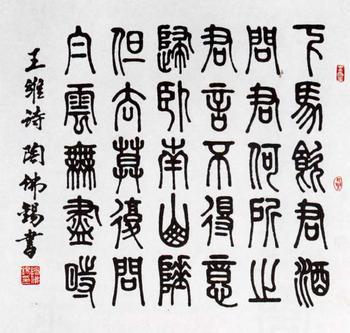 下馬飲君酒
問君何所之
君言不得意
歸卧南山陲
但去莫復問
白雲無盡時
王維詩 陶佛錫書